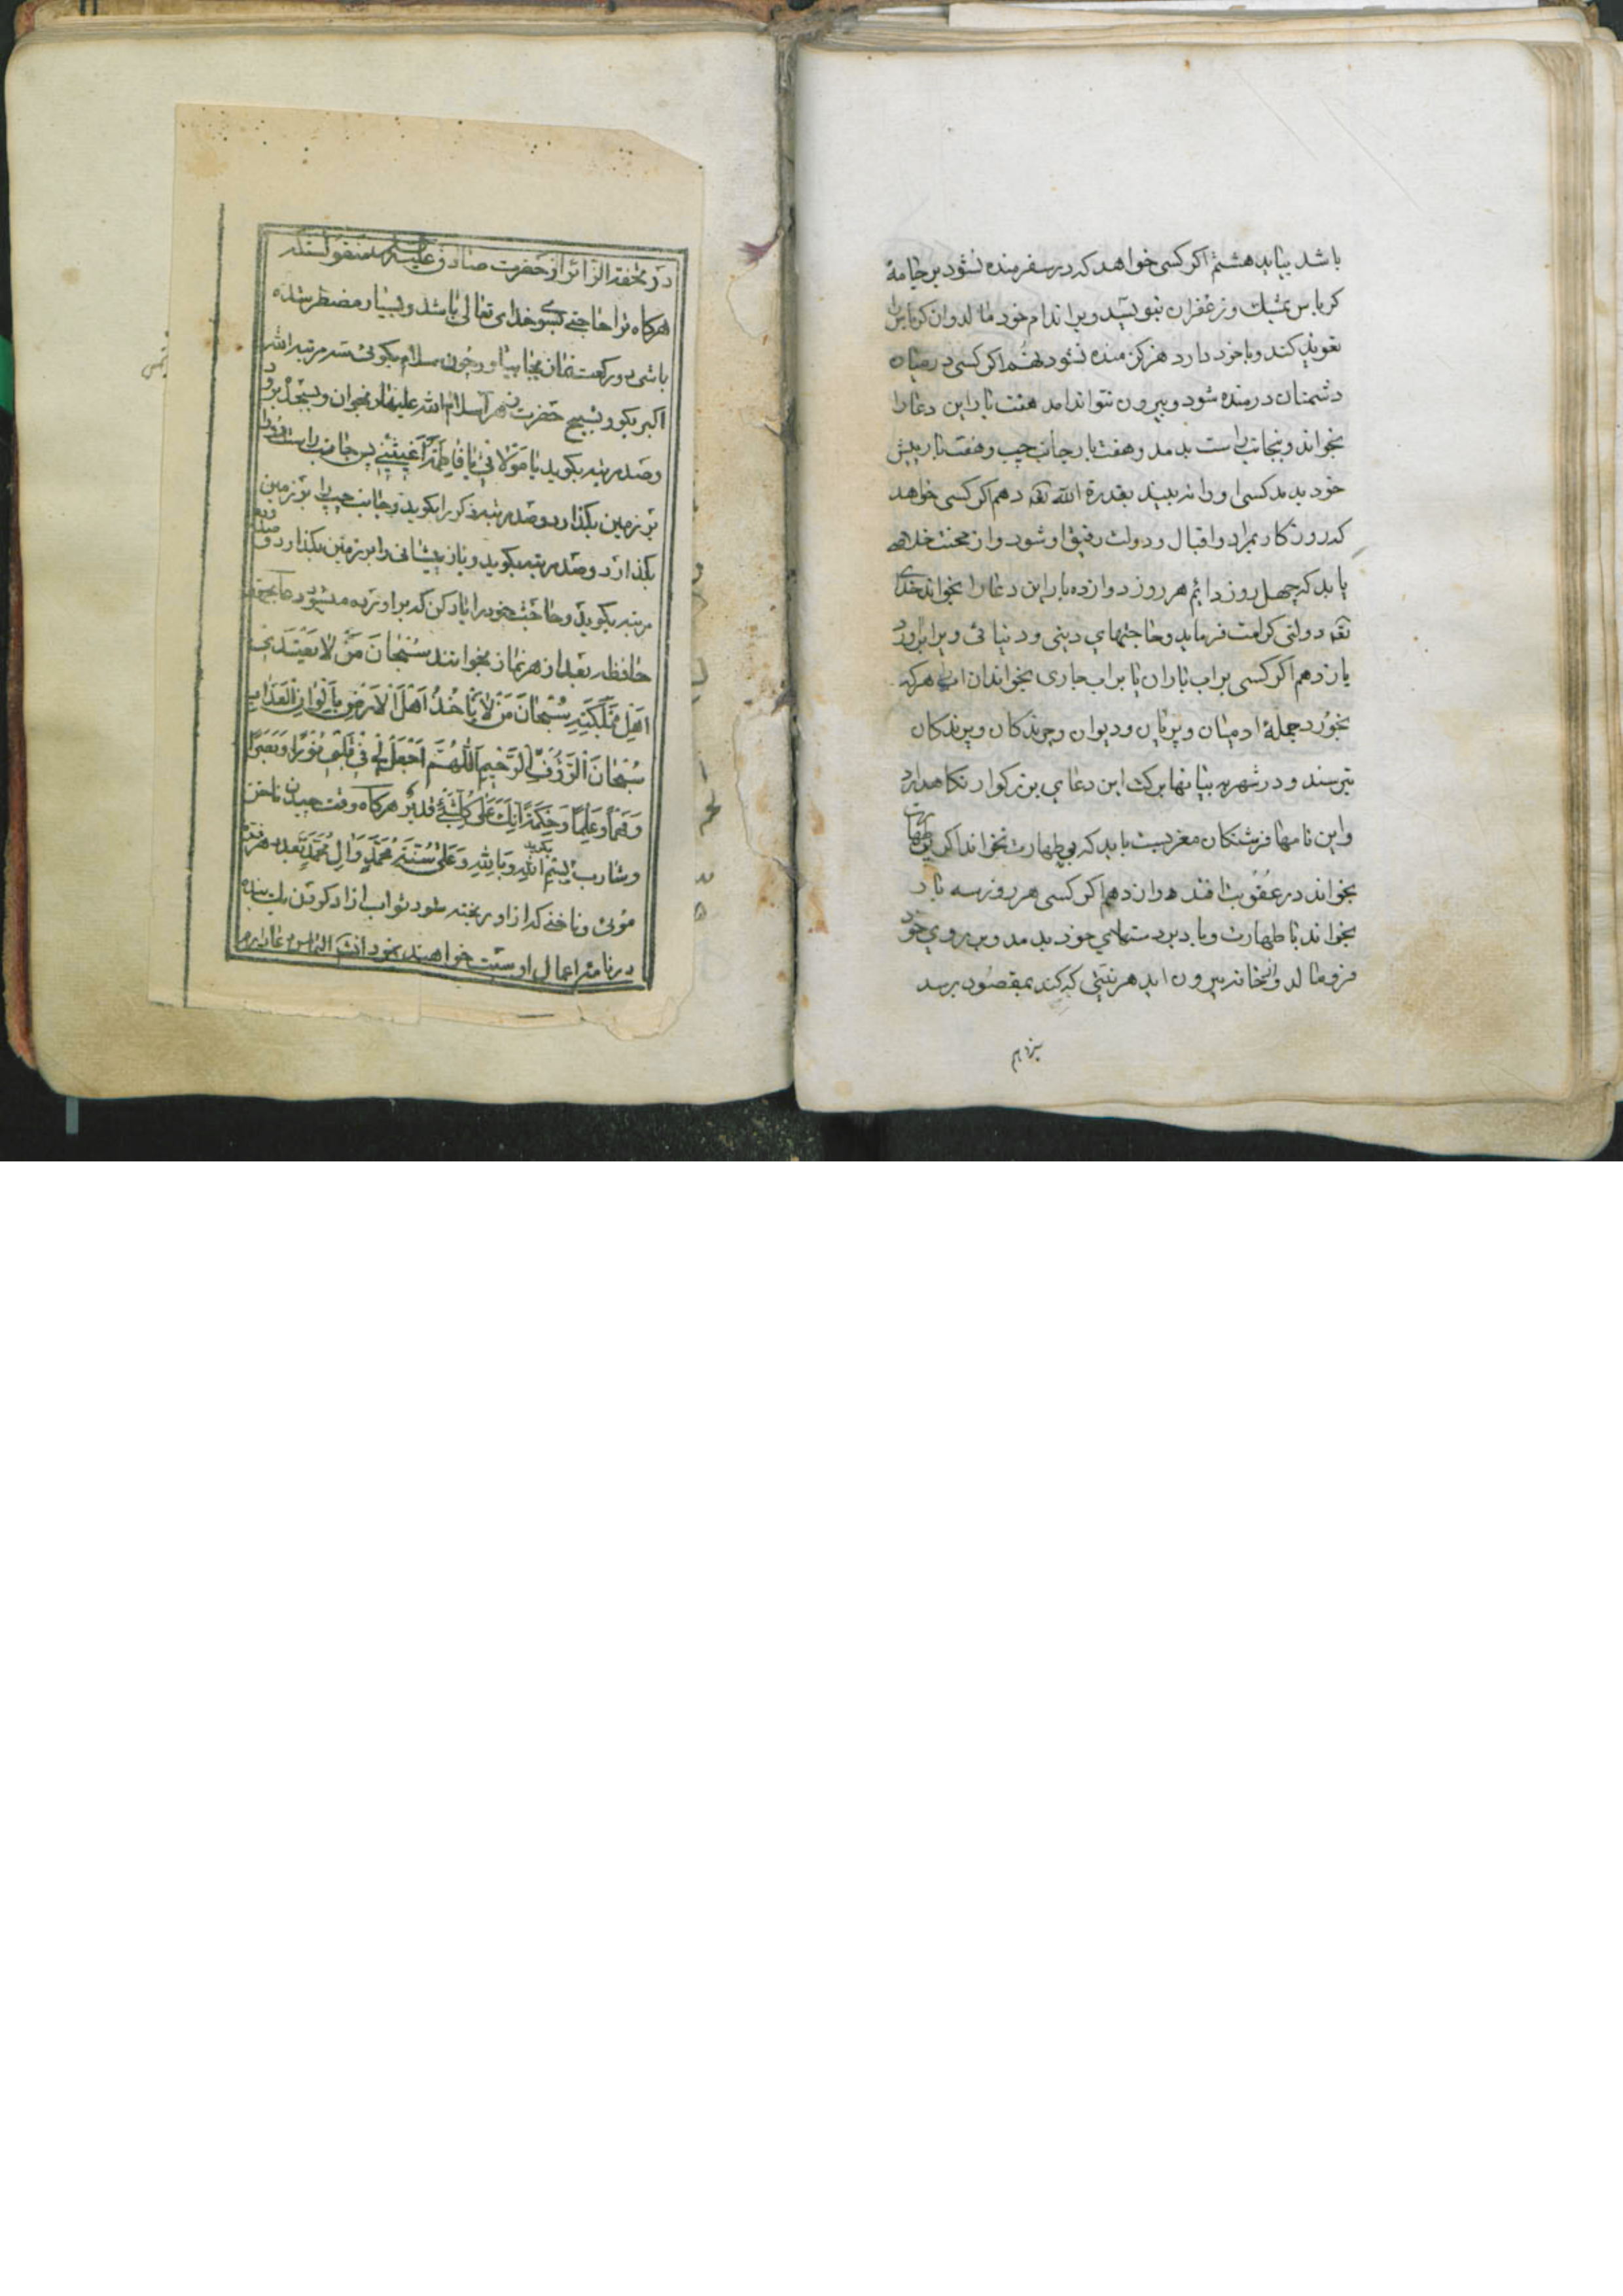 باشد بیاید هشتم اگر کسی خواهد که در سفر منده نشود بر جامهٔ
کرباس بمشک و زعفران بنویسد و بر اندام خود مالد و ان کرباس را
تعویذ کند و با خود دارد هرکز منده نشود نهم اگر کسی در میان
دشمنان درمنده شود و بیرون نتواند امد هفت بار این دعا را
بخواند و بجانب راست بدمد و هفت بار بجانب چپ و هفت بار پیش
خود بدمد کسی او را نه بیند بقدرة الله تعه دهم اگر کسی خواهد
که روزکار بمراد و اقبال و دولت رفیق او شود و از محنت خلاصی
یابد که چهل روز دایم هر روز دوازده بار این دعا را بخواند خدای
تعه دولتی کرامت فرماید و حاجتهای دینی و دنیائی ویرا براورد
یازدهم اگر کسی بر اب باران یا بر اب جاری بخواند ان اب هرکه
بخورد جملهٔ ادمیان و پریان و دیوان و چرندکان و پرندکان
بترسند و در شهر و بیابانها برکت این دعای بزرکوار نکاهدارد
و این نامها فرشتکان مغربست باید که بی طهارت نخواند اگر بی طهارت
بخواند در عقوبت افتد دوازدهم اگر کسی هر روز سه بار
بخواند با طهارت و باد بر دستهای خود بدمد و بر روی خود
فرو مالد و از خانه بیرون اید هر نیتی که کند بمقصود برسد
سیزدهم
در تحفة الزائر از حضرت صادق علیه السلام منقولستکه
هرکاه ترا حاجتی بسوی خدای تعالی باشد و بسیار مضطر شده
باشی دو رکعت نماز بجا بیاور و چون سلام بکوئی سه مرتبه الله
اکبر بکو و تسبیح حضرت زهرا سلام الله علیها را بخوان و بسجده برو
و صد مرتبه بکوید یا مولاتی یا فاطمة اغیثینی پس جانب راست رو را
بر زمین بکذارد و صد مرتبه ذکر را بکوید و جانب چپ را بر زمین
بکذارد و صد مرتبه بکوید و باز پیشانی را بر زمین بکذارد و صد و ده
مرتبه بکوید و حاجت خود را یاد کن که براورده میشود دعا بجهة
حافظه بعد از هر نماز بخوانند سُبْحانَ مَنْ لا یَعْتَدی عَلی
اَهْلِ مَمْلَکَتِهِ سُبْحانَ مَنْ لا یَأخُذُ اَهْلَ الاَرْضِ بِاَلْوانِ الْعَذابِ
سُبْحانَ الرَّؤُفِ الرَّحیمِ اَللّهُمَّ اجْعَلْ لی فی قَلْبی نُوراً وَ بَصَراً
وَ فَهْماً وَ عِلْماً وَ حِکْمَةً اِنَّکَ عَلی کُلِّ شَیْئٍ قَدیرٌ هرکاه وقت چیدن ناخن
و شارب بکوید بِسْمِ اللهِ وَ بِاللهِ وَ عَلی سُنَّةِ مُحَمَّدٍ وَ الِ مُحَمَّدٍ بعدد هر
موئی و ناخنی که از او ریخته شود ثواب ازاد کردن یک بنده
در نامهٔ اعمال او ثبت خواهند نمود انشاء الله التماس دعا دارم